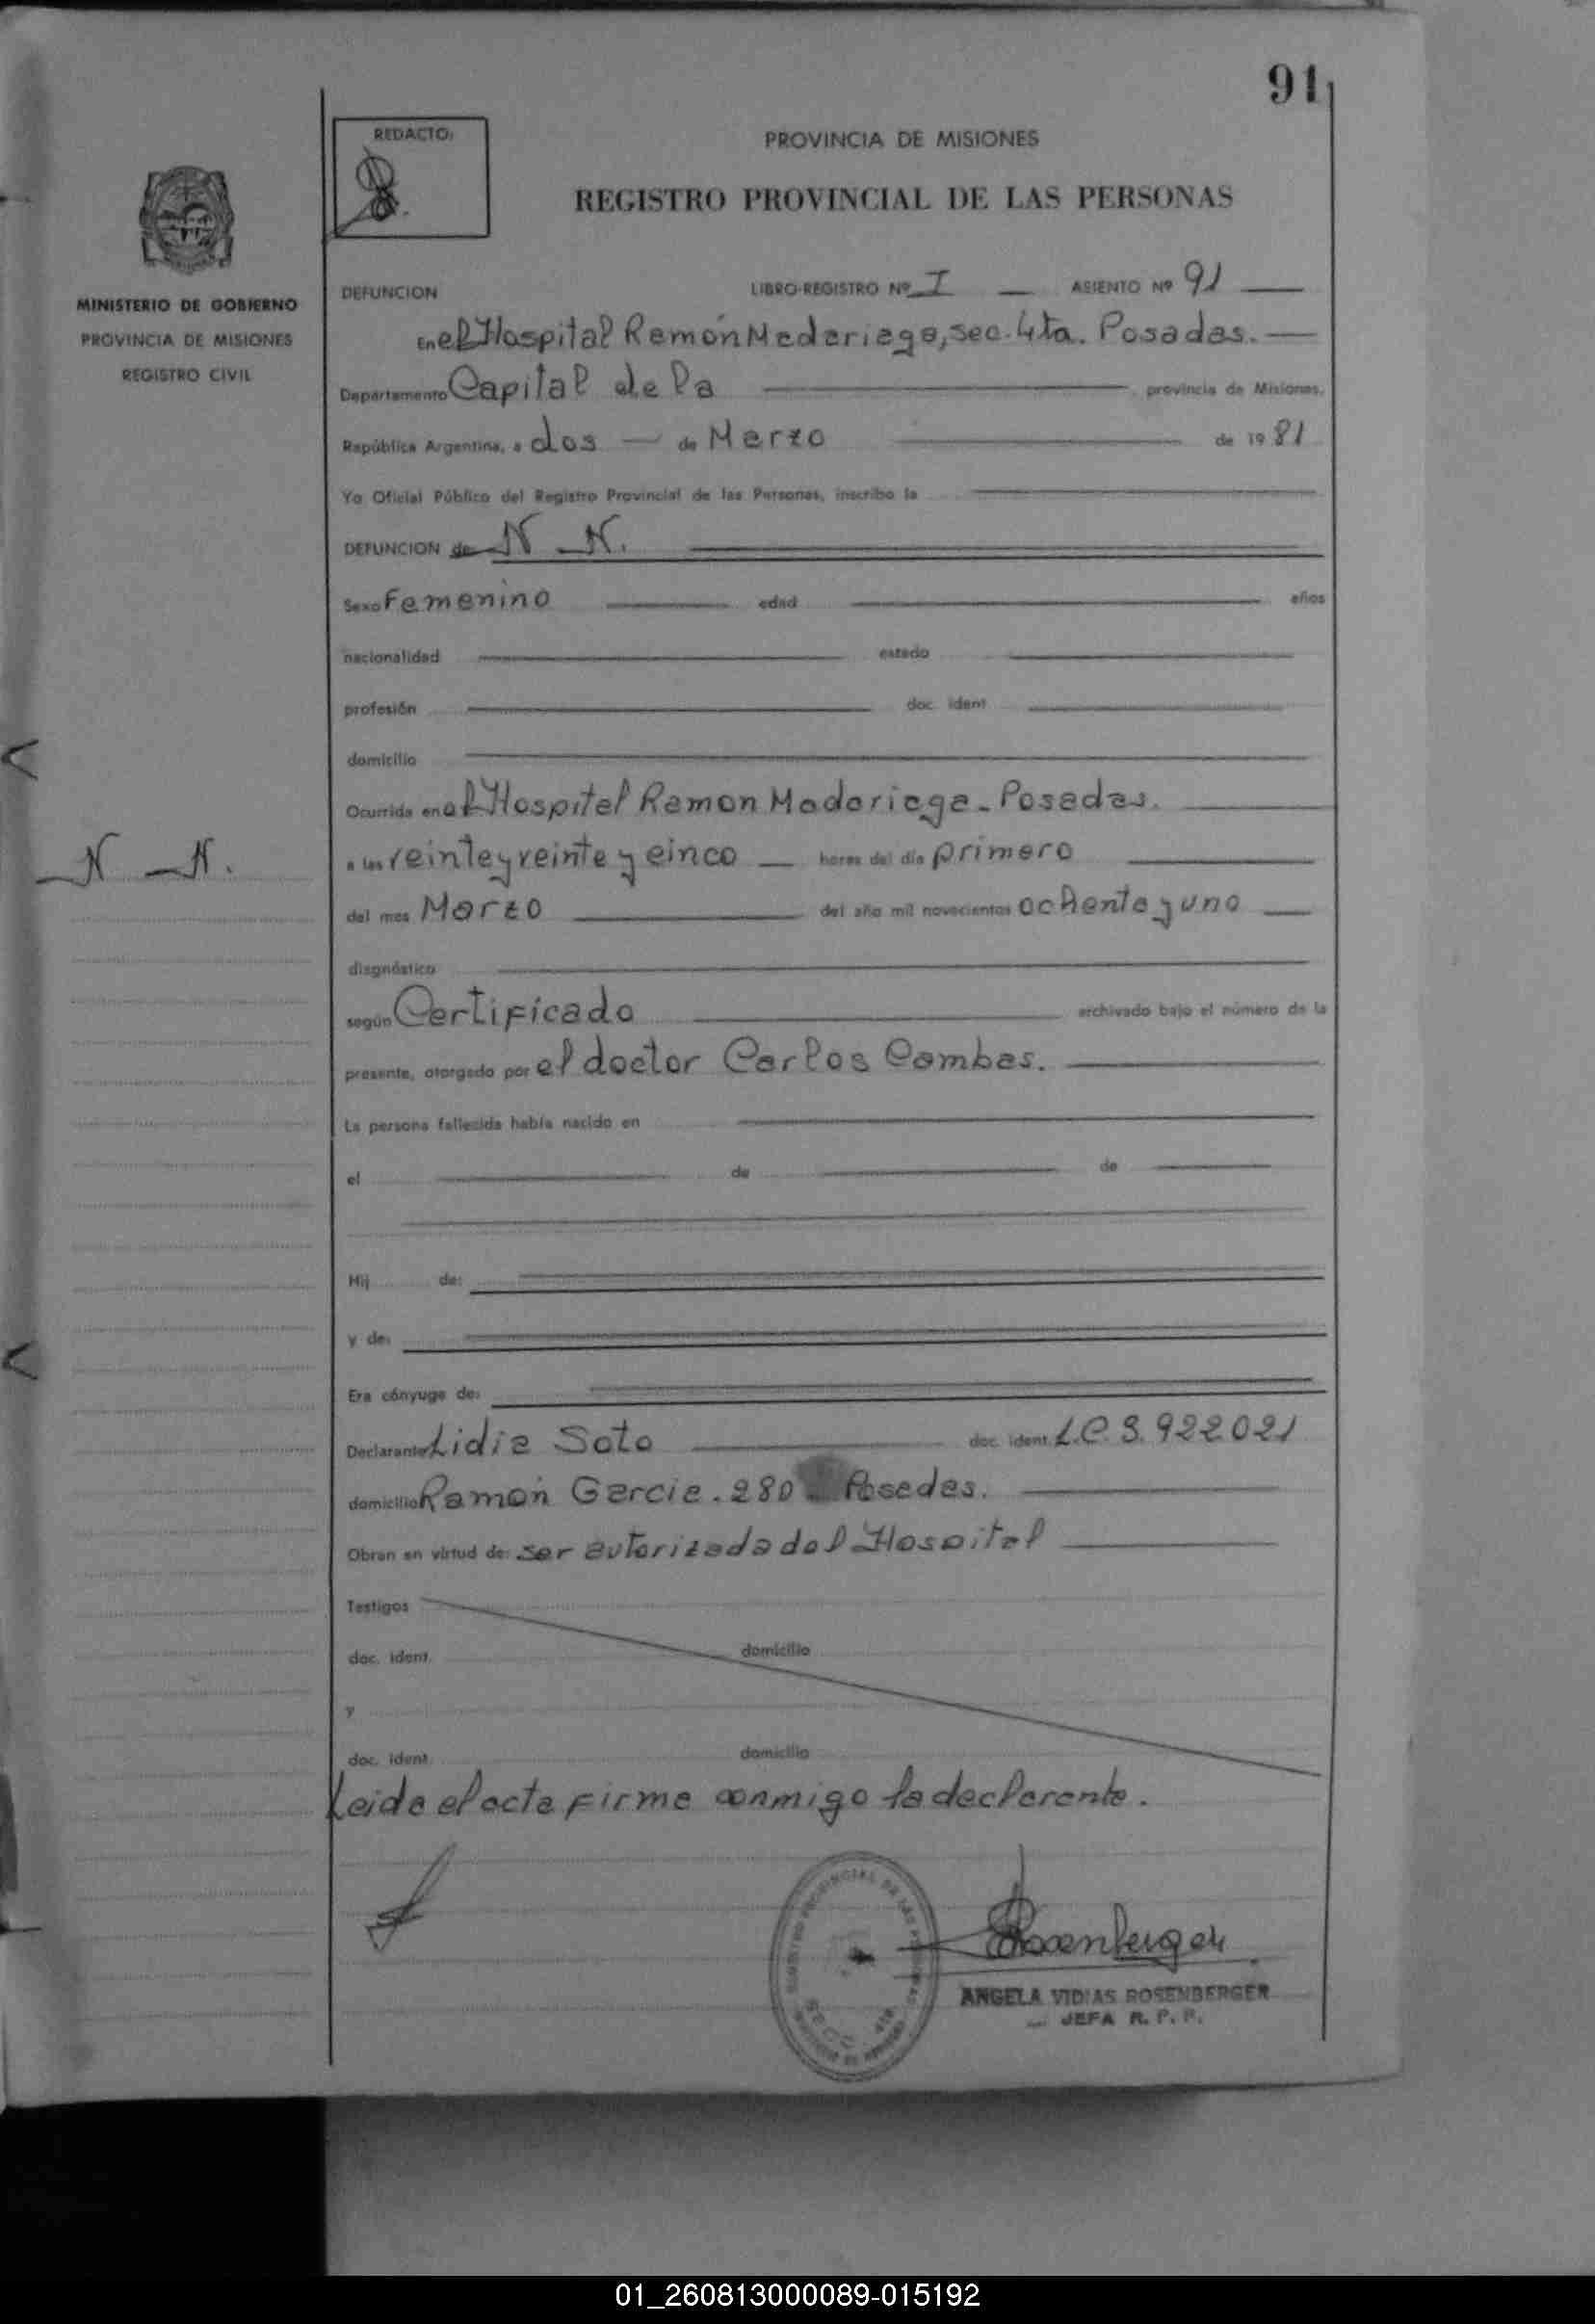 91
REDACTO:
PROVINCIA DE MISIONES
REGISTRO PROVINCIAL DE LAS PERSONAS
MINISTERIO DE GOBIERNO
PROVINCIA DE MISIONES
REGISTRO CIVIL
DEFUNCION LIBRO-REGISTRO Nº I ASIENTO Nº 91
En el Hospital Ramón Madariaga, sec. 4ta. Posadas.
Departamento Capital de la provincia de Misiones,
República Argentina, a dos de Marzo de 1981
Yo Oficial Público del Registro Provincial de las Personas, inscribo la
DEFUNCION de N N.
Sexo Femenino edad años
nacionalidad estado
profesión doc. ident.
domicilio
Ocurrida en el Hospital Ramon Madariaga - Posadas.
N N.
a las veinte y veinte y cinco horas del día primero
del mes Marzo del año mil novecientos ochenta y uno
diagnóstico
según Certificado archivado bajo el número de la
presente, otorgado por el doctor Carlos Cambas.
La persona fallecida había nacido en
el de de
Hij de:
y de:
Era cónyuge de:
Declarante Lidia Soto doc. ident. L.C. 3.922021
domicilio Ramón Garcia. 280 Posadas.
Obran en virtud de: ser autorizada del Hospital
Testigos
doc. ident. domicilio
y
doc. ident. domicilio
Leida el acta firma conmigo la declarante.
Rosenberger
ANGELA VIDIAS ROSENBERGER
JEFA R. P. P.
01_260813000089-015192